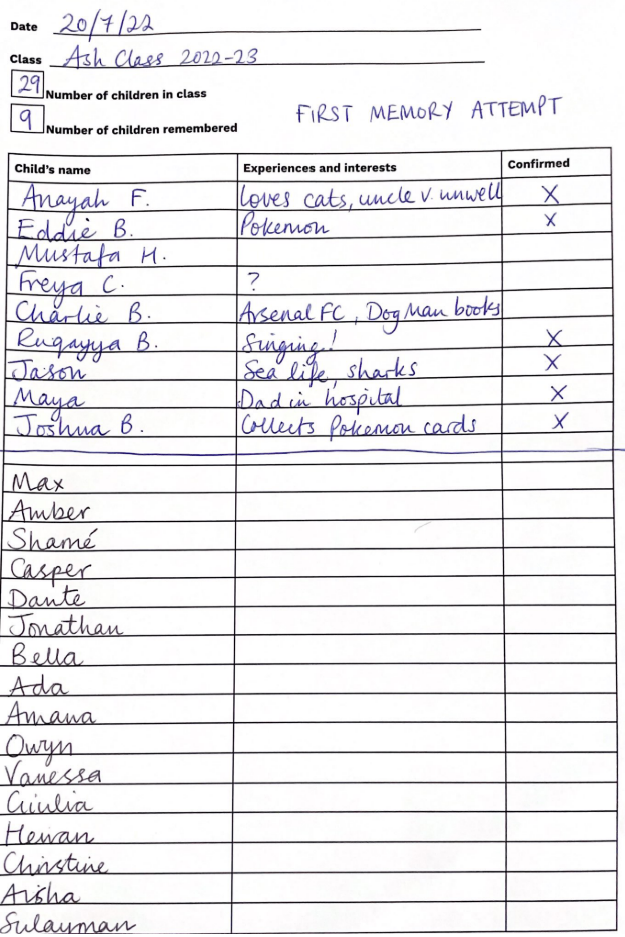 Date 20/7/22
Class Ash Class 2022-23
29 Number of children in class
FIRST MEMORY ATTEMPT
9 Number of children remembered
Child's name Experiences and interests Confirmed
Anayah F. loves cats, uncle v. unwell X
Eddie B. Pokemon X
Mustafa H.
Freya C. ?
Charlie B. Arsenal FC, Dog Man books
Ruqayya B. Singing! X
Jason Sea life, sharks X
Maya Dad in hospital X
Joshua B. Collects Pokemon cards X
Max
Amber
Shamé
Casper
Dante
Jonathan
Bella
Ada
Amana
Owyn
Vanessa
Giulia
Hewan
Christine
Aisha
Sulayman